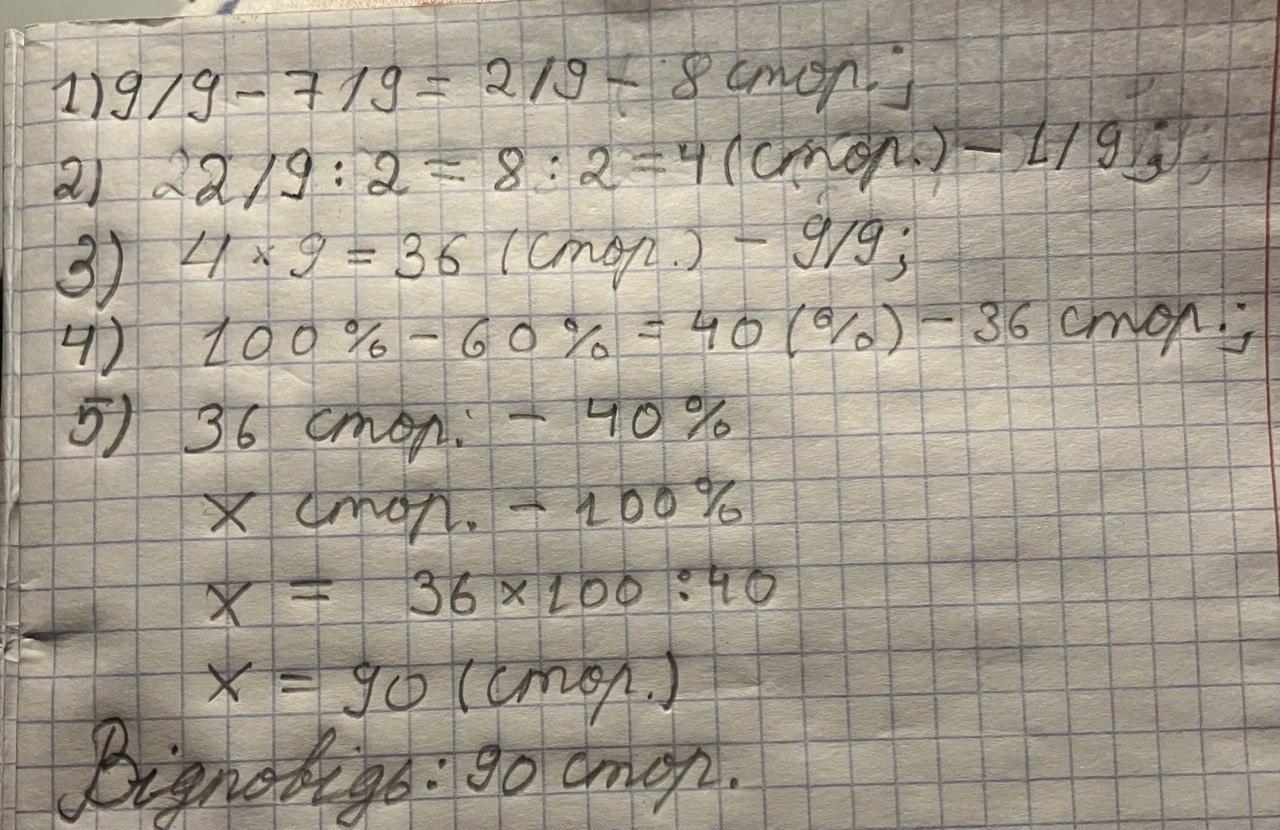 1) 9/9 - 7/9 = 2/9 - 8 стор.;
2) 2/9 : 2 = 8 : 2 = 4 (стор.) - 1/9;
3) 4 × 9 = 36 (стор.) - 9/9;
4) 100% - 60% = 40 (%) - 36 стор.;
5) 36 стор. - 40%
х стор. - 100%
х = 36 × 100 : 40
х = 90 (стор.)
Відповідь: 90 стор.